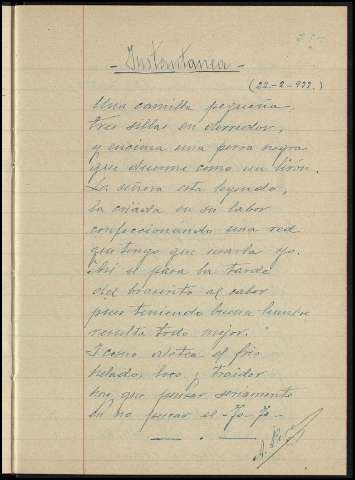 - Instantanea -
(22-2-933.)
Una camilla pequeña,
tres sillas en derredor,
y encima una perra negra
que duerme como un lirón.
La señora está leyendo,
la criada en su labor
confeccionando una red
que tengo que usarla yo.
Así se pasa la tarde
del braserito al calor
pues teniendo buena lumbre
resulta todo mejor.
Y como aletea el frio
helado, loco y traidor
hay que pensar seriamente
en no pescar el -Jo-Jo.-